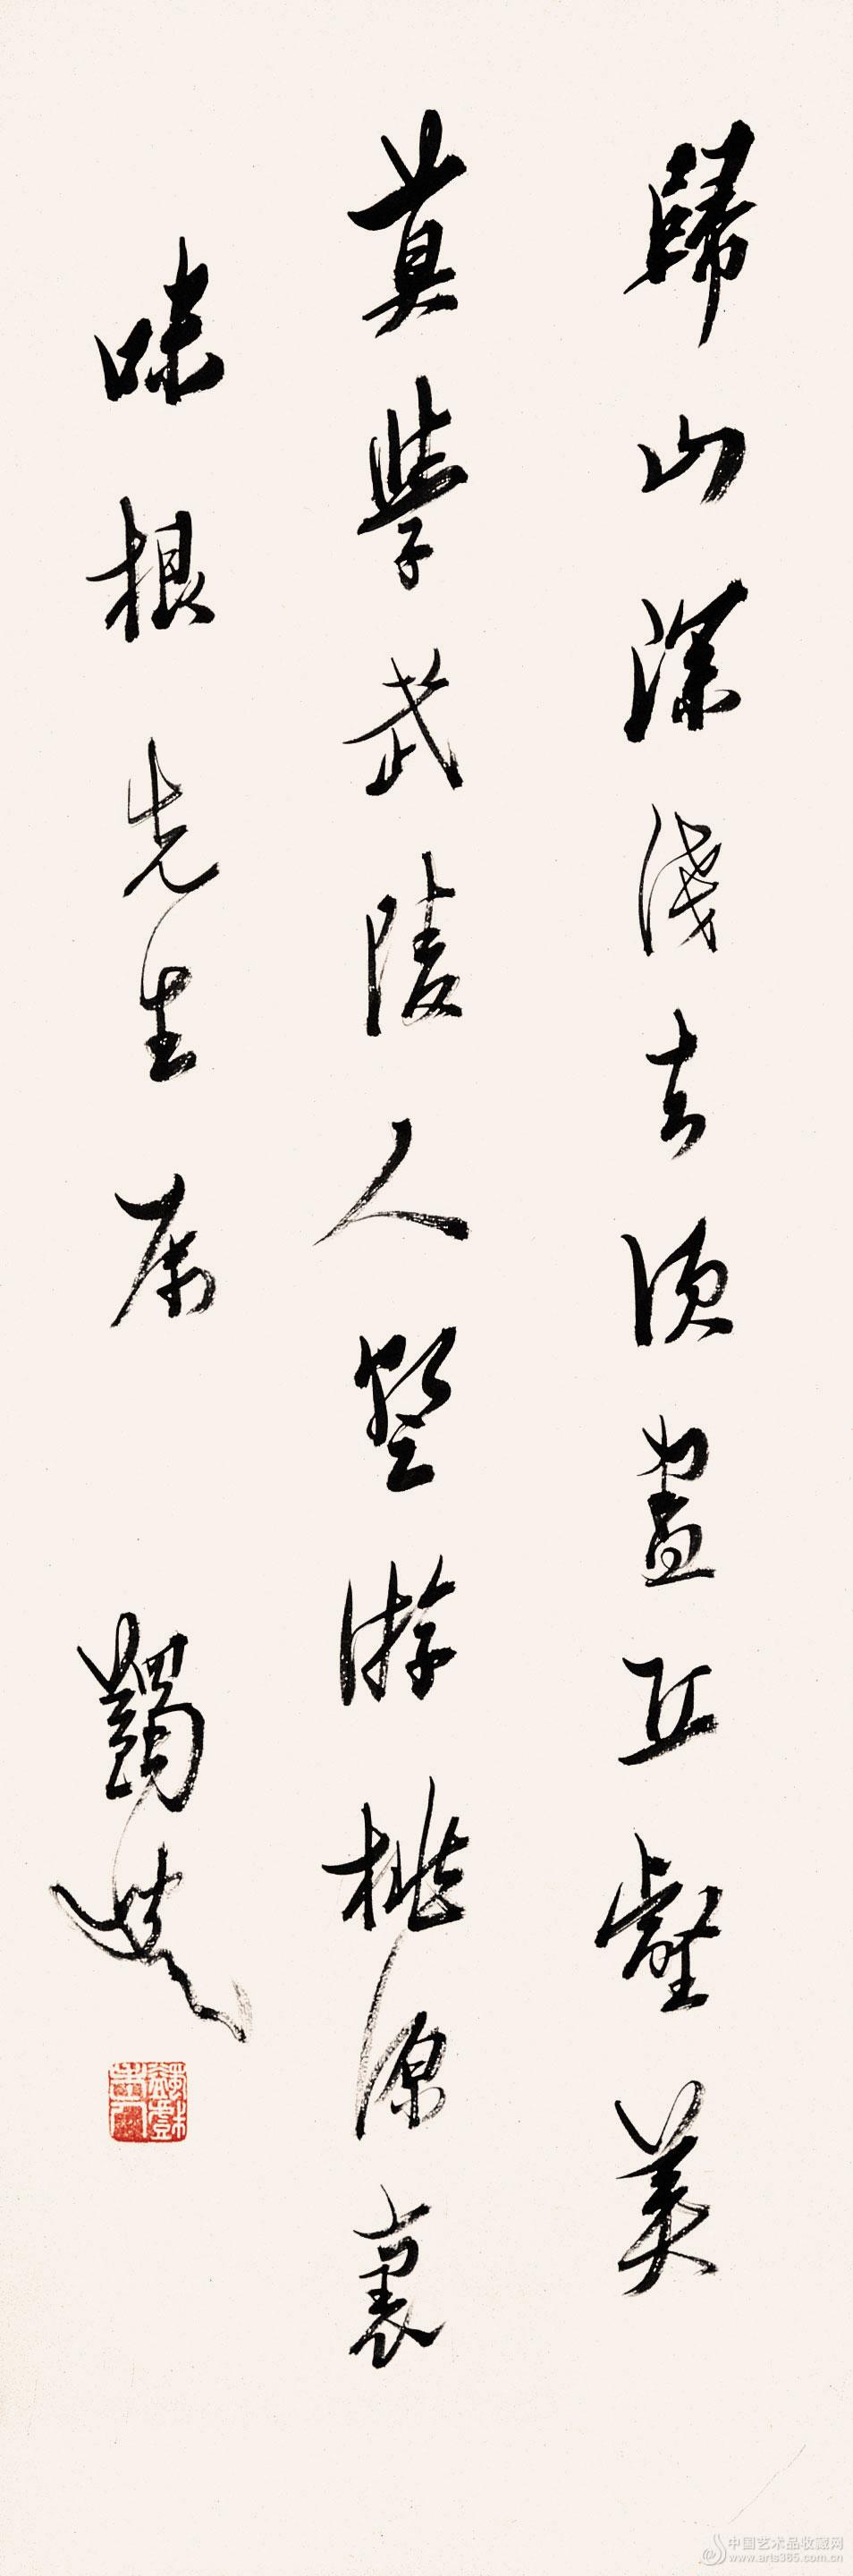 歸山深淺去須盡丘壑美
莫學武陵人暫游桃源裏
味根先生屬
蠲叟
中国艺术品收藏网
www.arts365.com.cn